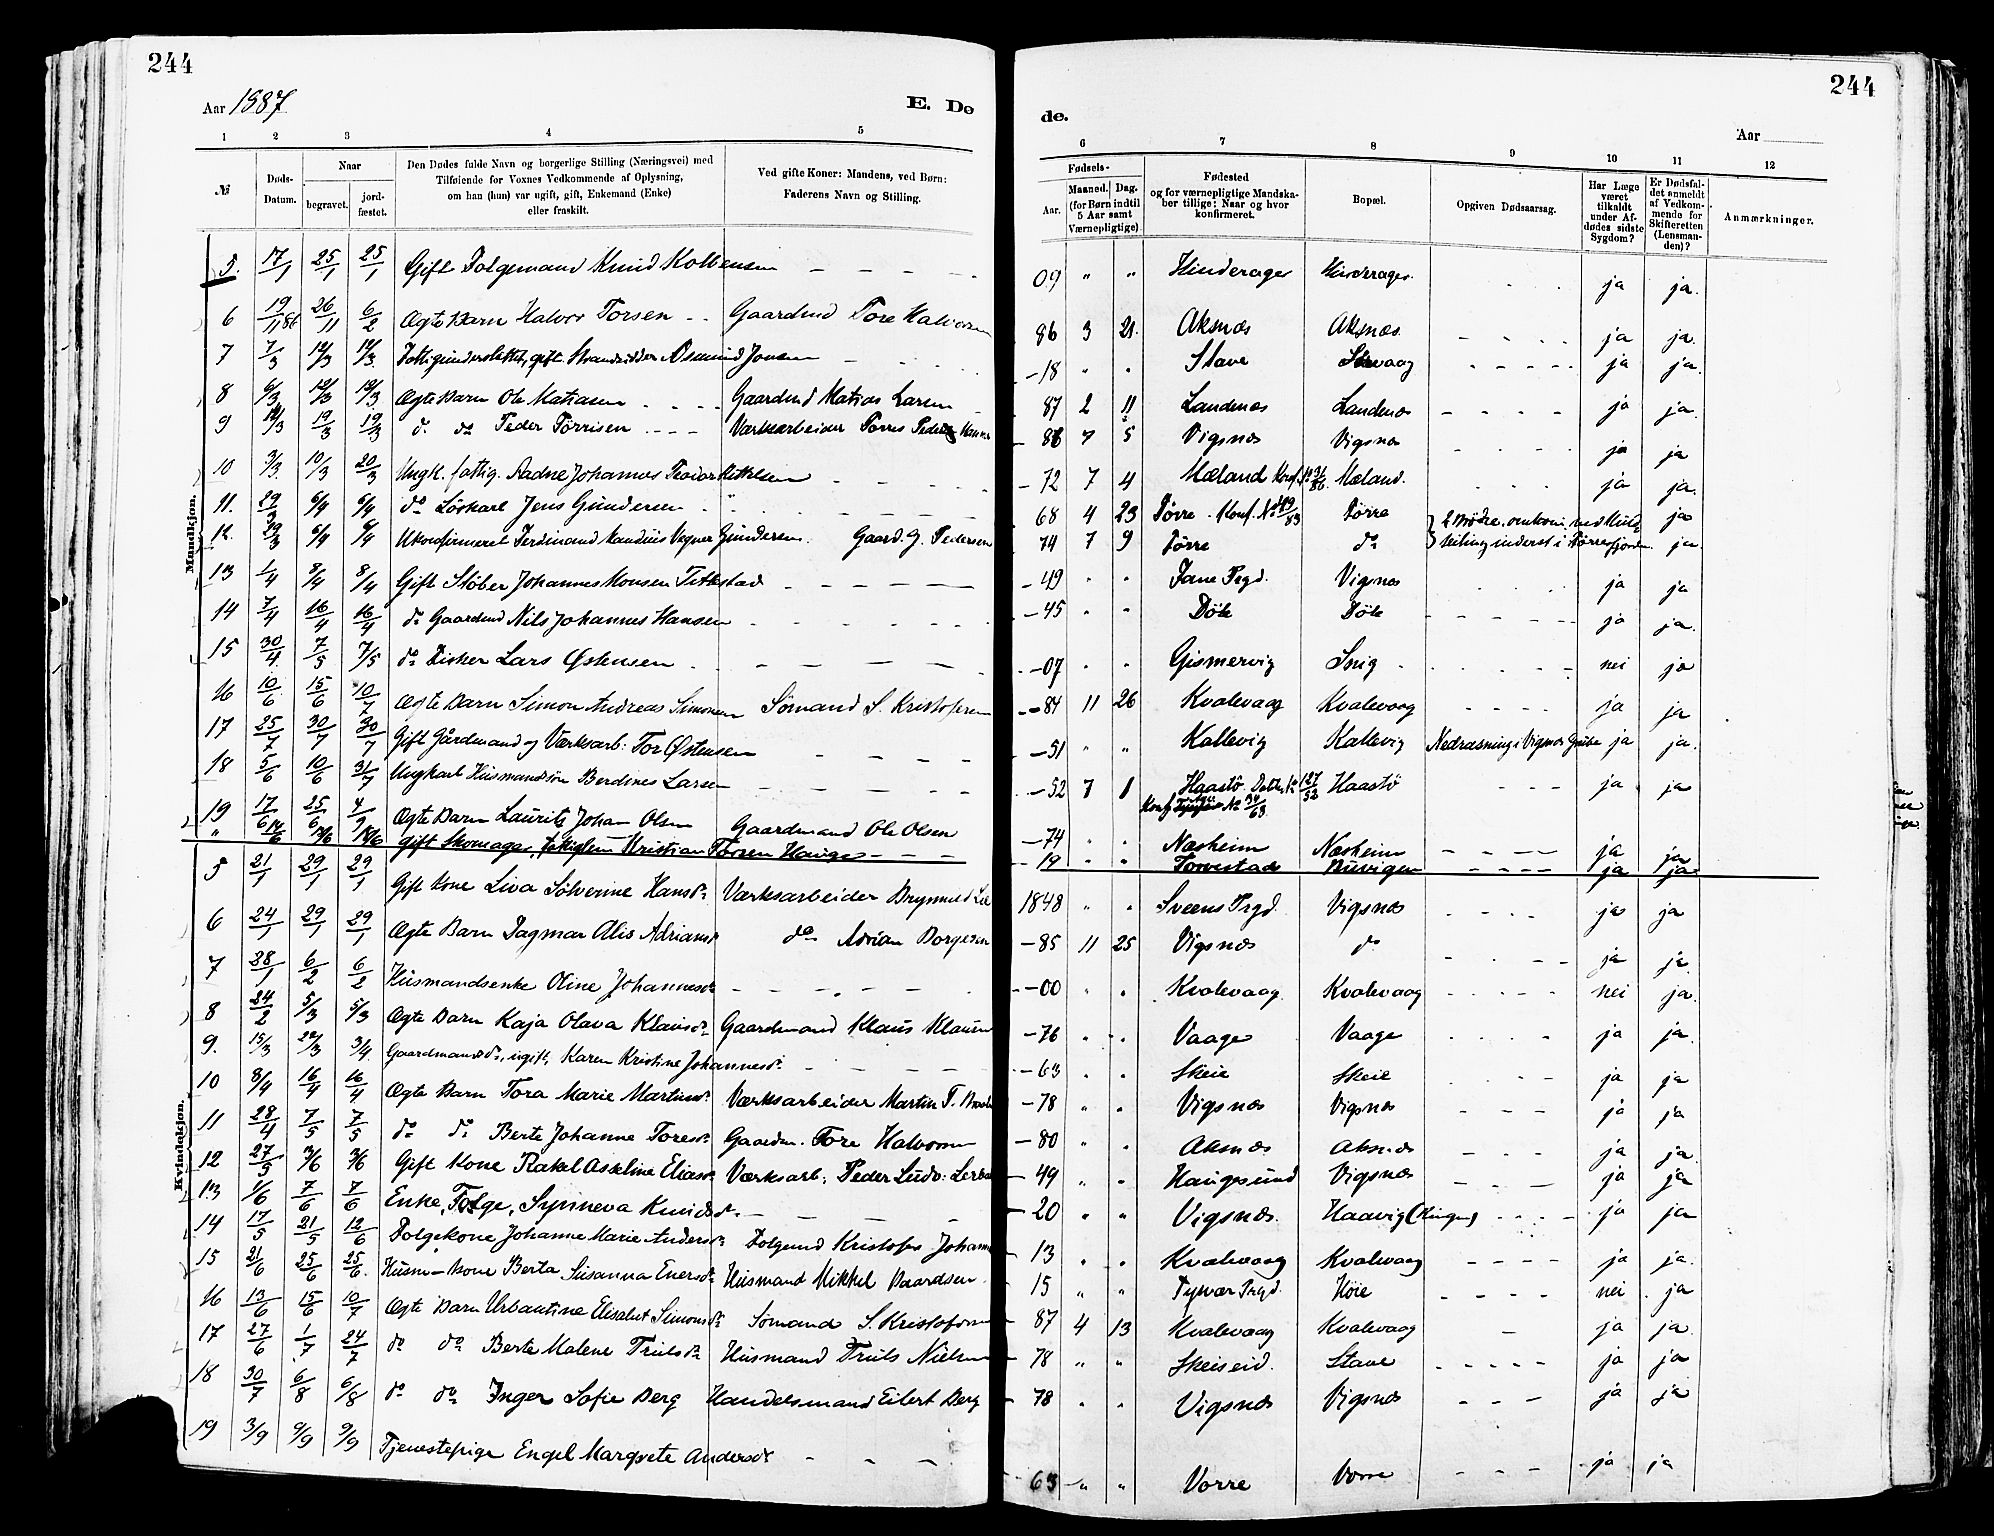 244
244
Aar 1887
E. Dø
de.
Aar
1 2 3 4 5 6 7 8 9 10 11 12
№
Døds-Datum.
Naar
begravet.
jord-fæstet.
Den Dødes fulde Navn og borgerlige Stilling (Næringsvei) med
Tilføiende for Voxnes Vedkommende af Oplysning,
om han (hun) var ugift, gift, Enkemand (Enke)
eller fraskilt.
Ved gifte Koner: Mandens, ved Børn:
Faderens Navn og Stilling.
Fødsels-
Aar.
Maaned. Dag.
(for Børn indtil
5 Aar samt
Værnepligtige)
Fødested
og for værnepligtige Mandska-
ber tillige: Naar og hvor
konfirmeret.
Bopæl.
Opgiven Dødsaarsag.
Har Læge
været
tilkaldt
under Af-
dødes sidste
Sygdom?
Er Dødsfal-
det anmeldt
af Vedkom-
mende for
Skifteretten
(Lensman-
den)?
Anmærkninger.
Mandkjøn.
5. 17/1 25/1 25/1 Gift Folgemand Knud Kolbensen 09 " " Hinderager Hinderager ja ja.
6 19/11 86 26/11 6/2 Ægte Barn Halvor Torsen Gaardmd Tore Halvorsen 86 3 21. Aksnæs Aksnæs ja ja.
7 7/3 12/3 12/3 gift Strandsidder Asmund Jonsen -18 " " Stave ja ja.
8 6/3 12/3 12/3 Ægte Barn Ole Matiasen Gaardmd Matias Larsen 87 2 11 Landenæs Landenæs ja ja.
9 12/3 19/3 19/3 d. do Peder Tørrisen Værksarbeider Tørres 86 7 5 Vigsnæs Vigsnæs ja ja
10 3/3 10/3 20/3 Ungk. fattig. Aadne Johannes -72 7 4 Mæland Mæland. ja ja.
11. 29/3 6/4 6/4 do Løskarl Jens Gundersen 68 4 23 Førre Konf. Førre 2 Brødre, omkom ved ja
12. 29/3 6/4 6/4 Ukonfirmeret Ferdinand Gundersen. Gaard. G. Pedersen 74 7 9 Førre do seiling inderst i Førrefjorden ja.
13 1/4 8/4 8/4 Gift Støber Johannes Monsen -49 " " Vigsnæs ja ja
14 7/4 16/4 16/4 do Gaardmd Nils Johannes Hansen -45 " " Døle Døle ja ja.
15 30/4 7/5 7/5 do Fisker Lars Østensen -07 " " Gismervig Snig nei ja
16 10/6 15/6 10/7 Ægte Barn Simon Andreas Simonsen Sømand S. Kristofersen -84 11 26 Kvalevaag Kvalevaag ja ja
17 25/7 30/7 30/7 Gift Gårdmand og Værksarb: Tor Østensen -51 " " Kallevig Kallevig Nedrasning i Vigsnæs Grube ja ja.
18 5/6 10/6 31/7 Ungkarl Husmandssøn Berdines Larsen -52 7 1 Haastø Haastø ja ja
19 17/6 25/6 4/9 Ægte Barn Laurits Johan Olsen Gaardmand Ole Olsen -74 " " Næsheim Næsheim ja ja
" gift Skomager, Kristian Torsen Hauge -19 " " Torvestad ja ja
Kvindekjøn.
5 21/1 29/1 29/1 Gift Kone Liva Sølverine Hansdr Værksarbeider 1848 " " Sveens Prgd. Vigsnæs ja ja
6 24/1 29/1 29/1 Ægte Barn Dagmar Alis Adriansdr do Adrian Borgesen -85 11 25 Vigsnæs do ja ja.
7 28/1 6/2 6/2 Husmandsenke Oline Johannesdr -00 " " Kvalevaag Kvalevaag nei ja.
8 24/2 5/3 5/3 Ægte Barn Kaja Olava Klausdr Gaardmand Klaus Klausen -76 " " Vaage Vaage ja ja.
9. 15/3 3/4 Gaardmandsdr, ugift, Karen Kristine Johannesdr. -63 " " Skeie Skeie ja ja
10 8/4 16/4 16/4 Ægte Barn Tora Marie Martinsdr Værksarbeider Martin T. -78 " " Vigsnæs Vigsnæs ja ja
11 28/4 7/5 7/5 do do Berte Johanne Toresdr Gaardm. Tore Halvorsen -80 " " Aksnæs Aksnæs ja ja.
12 27/5 3/6 3/6 Gift Kone Rakel Asseline Eliasdr Værksarb: Peder Ludv: -49 " " Haugesund Vigsnæs ja ja
13 1/6 7/6 7/6 Enke, Folge, Synneva Knudsdr. -20 " " Vigsnæs. Haavig ja ja
14 17/5 21/5 12/6 Folgekone Johanne Marie Andersdr Folgemd Kristofer -13 " " Kvalevaag Kvalevaag ja ja.
15 21/6 25/6 25/6. Husm-kone Berta Susanna Enersdr Husmand Mikkel Baardsen 15 " " Tysvær Prgd. Høie nei ja
16 13/6 15/6 10/7 Ægte Barn Urbantine Elisabet Simonsdr Sømand S. Kristofersen 87 4 13 Kvalevaag Kvalevaag ja ja.
17 27/6 1/7 24/7 do do Berte Malene Trulsdr Husmand Truls Nielsen 78 " " Skeiseid. Stave ja ja
18 30/7 6/8 6/8 do do Inger Sofie Berg Handelsmand Eilert Berg 78 " " Vigsnæs Vigsnæs ja ja
19 3/9 9/9 9/9 Tjenestepige Engel Margrete Andersdr 63 " " Vorre Vorre ja ja